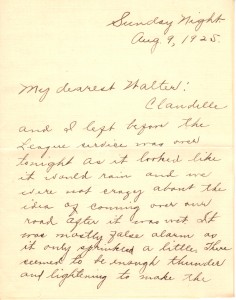 Sunday Night
Aug. 9, 1925
My dearest Walter:
Claudelle
and I left before the
League service was over
tonight as it looked like
it would rain and we
were not crazy about the
idea of coming over our
road after it was wet. It
was mostly false alarm as
it only sprinkled a little. There
seemed to be enough thunder
and lightening to make the